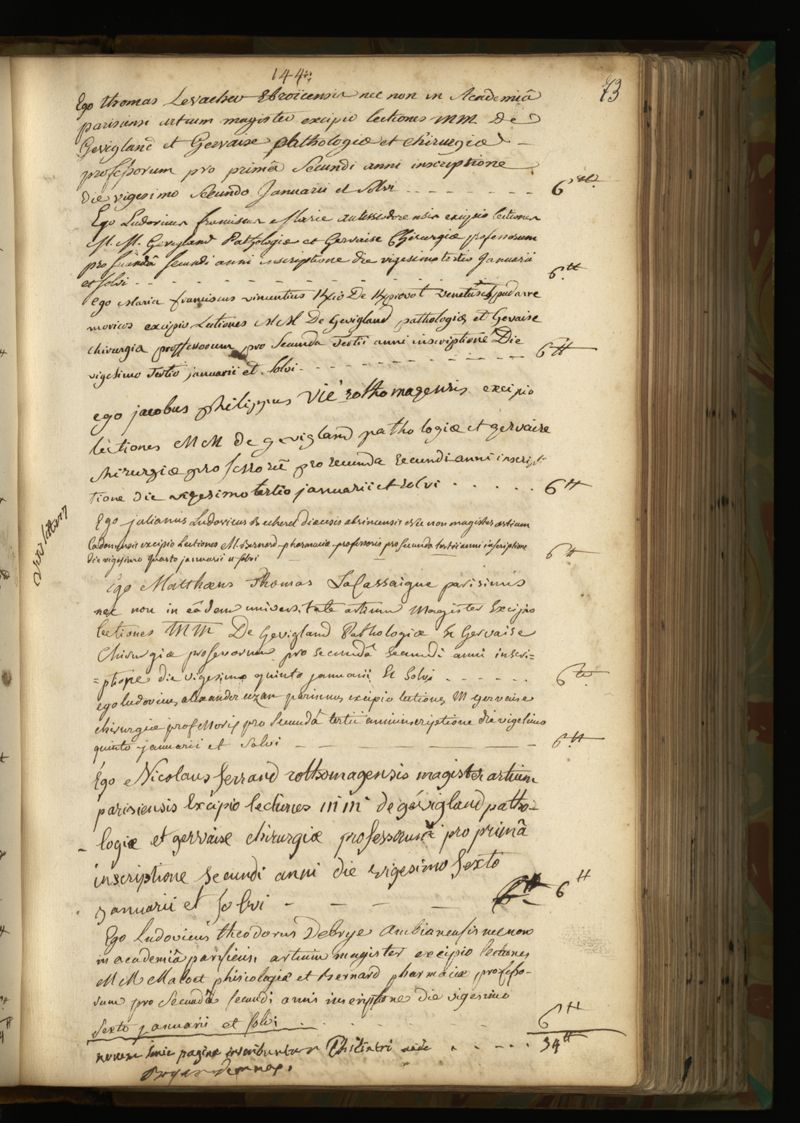 144
73
Ego thomas Levacher Ebroicensis nec non in Academiâ
parisiensi artium magister excipio lectiones MM De
Gevigland et Gervaise pathologiæ et chirurgiæ
professorum pro primâ Secundi anni inscriptione
die vigesimo Secundo Januarii et Solvi 6
Ego Ludovicus franciscus Marie excipio lectiones
M. M. Gevigland Pathologiæ et Gervaise Chirurgiæ professorum
pro secundâ secundi anni inscriptione die vigesimo tertio Januarii
et solvi 6 tt
ego Maria franciscus vincentius De
excipio Lectiones M M De Gevigland pathologiæ et Gervaise
chirurgiæ proffessorum pro Secunda Tertii anni inscriptione Die
vigesimo Tertio januarii et Solvi 6 tt
ego jacobus philippus Vié rothomagensis excipio
lectiones MM de gevigland pathologiæ et gervaise
chirurgiæ professorū pro secunda secundi anni inscrip
tione die vigesimo tertio januarii et solvi 6 tt
Ego julianus Ludovicus diocesis abrincensis nec non magister artium
Cadomensis excipio Lectiones M. Bernard pharmaciæ professoris pro secunda tertii anni inscriptione
die vigesimo quarto januarii et solvi 6 tt
Ego Matthæus Thomas LaCassaigne parisinus
nec non in eâdem universitate artium Magister Excipio
lectiones MM De Gevigland Pathologiæ & Gervaise
Chirurgiæ professorum pro secundâ secundi anni inscri=
=ptione die vigesimo quinto januarii & Solvi 6 tt
ego ludovicus alexander parisinus excipio lectiones M gervaise
chirurgiæ professoris pro secundâ tertii anni inscriptione die vigesimo
quinto januarii et solvi 6 tt
Ego Nicolaus ferrand rothomagensis magister artium
parisiensis Excipio lectiones MM de gévigland patho-
logiæ et gervaise chirurgiæ professorum pro primâ
inscriptione secundi anni die vigesimo sexto
januarii et solvi 6 tt
Ego Ludovicus theodorus Debrye Ambianensis nec non
in academiâ parisiensi artium magister excipio lectiones
MM Maloet phisiologiæ et Bernard pharmaciæ professo-
rum pro Secundâ secundi anni inscriptione die vigesimo
sexto januarii et solvi 6 tt
huic paginæ inscribuntur Philiatri 54 tt